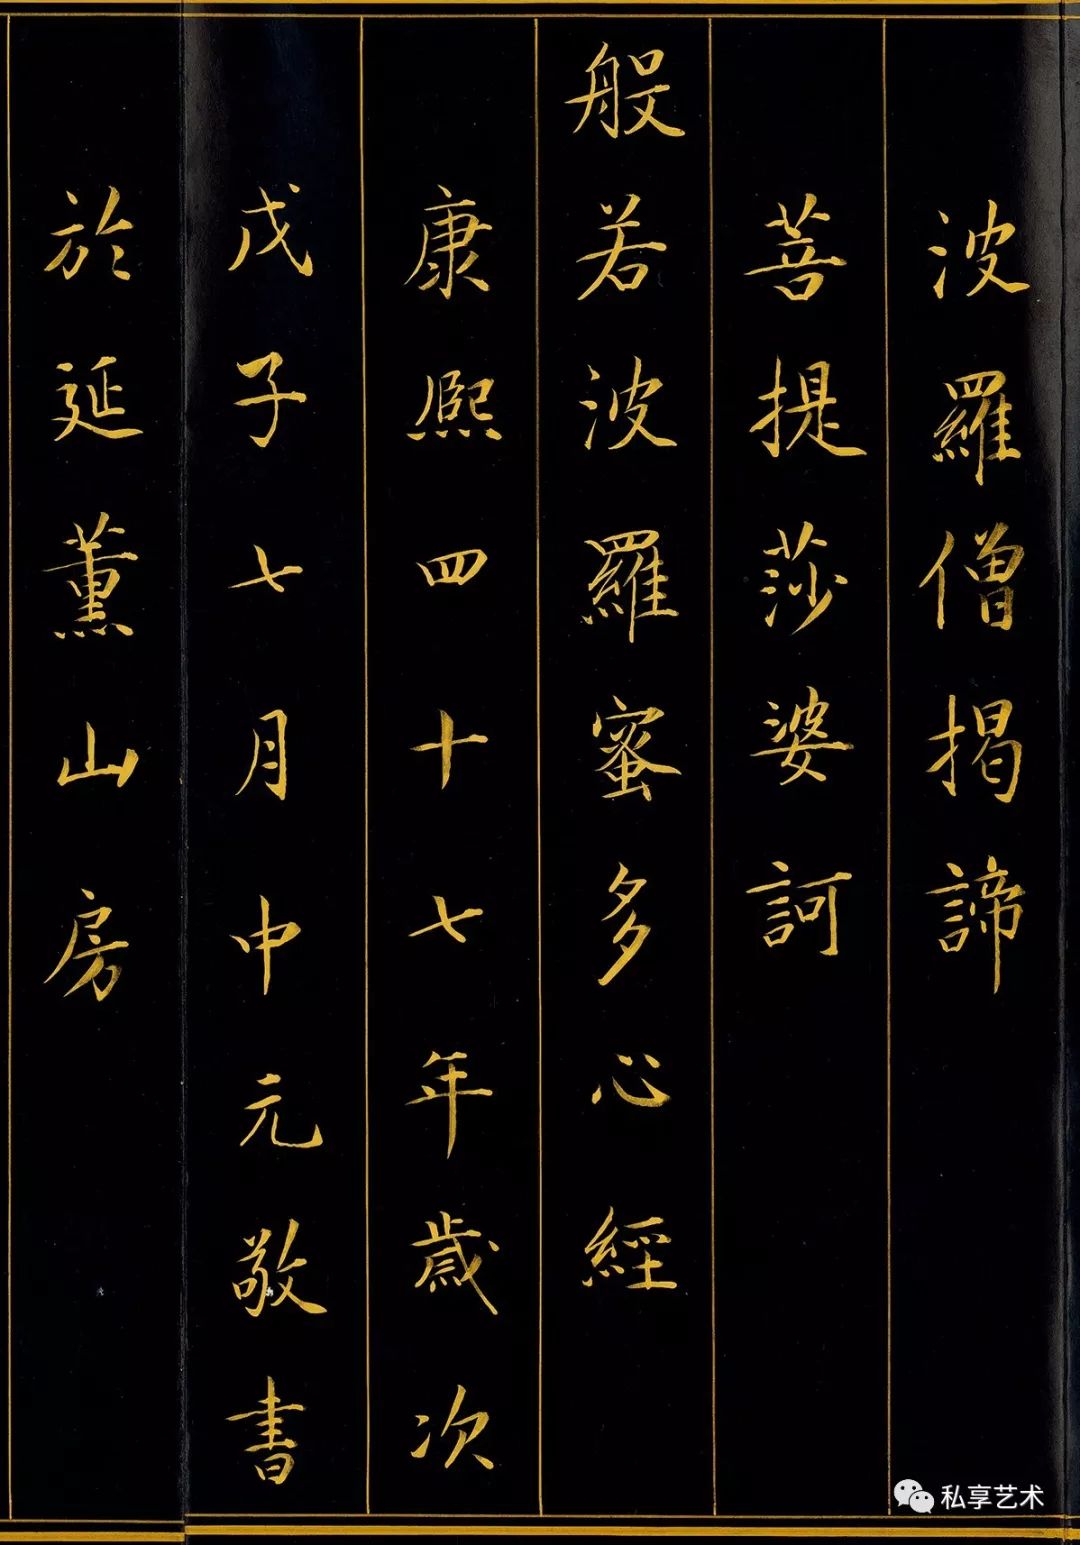 波羅僧揭諦
菩提莎婆訶
般若波羅蜜多心經
康熙四十七年歲次
戊子七月中元敬書
於延薰山房
私享艺术